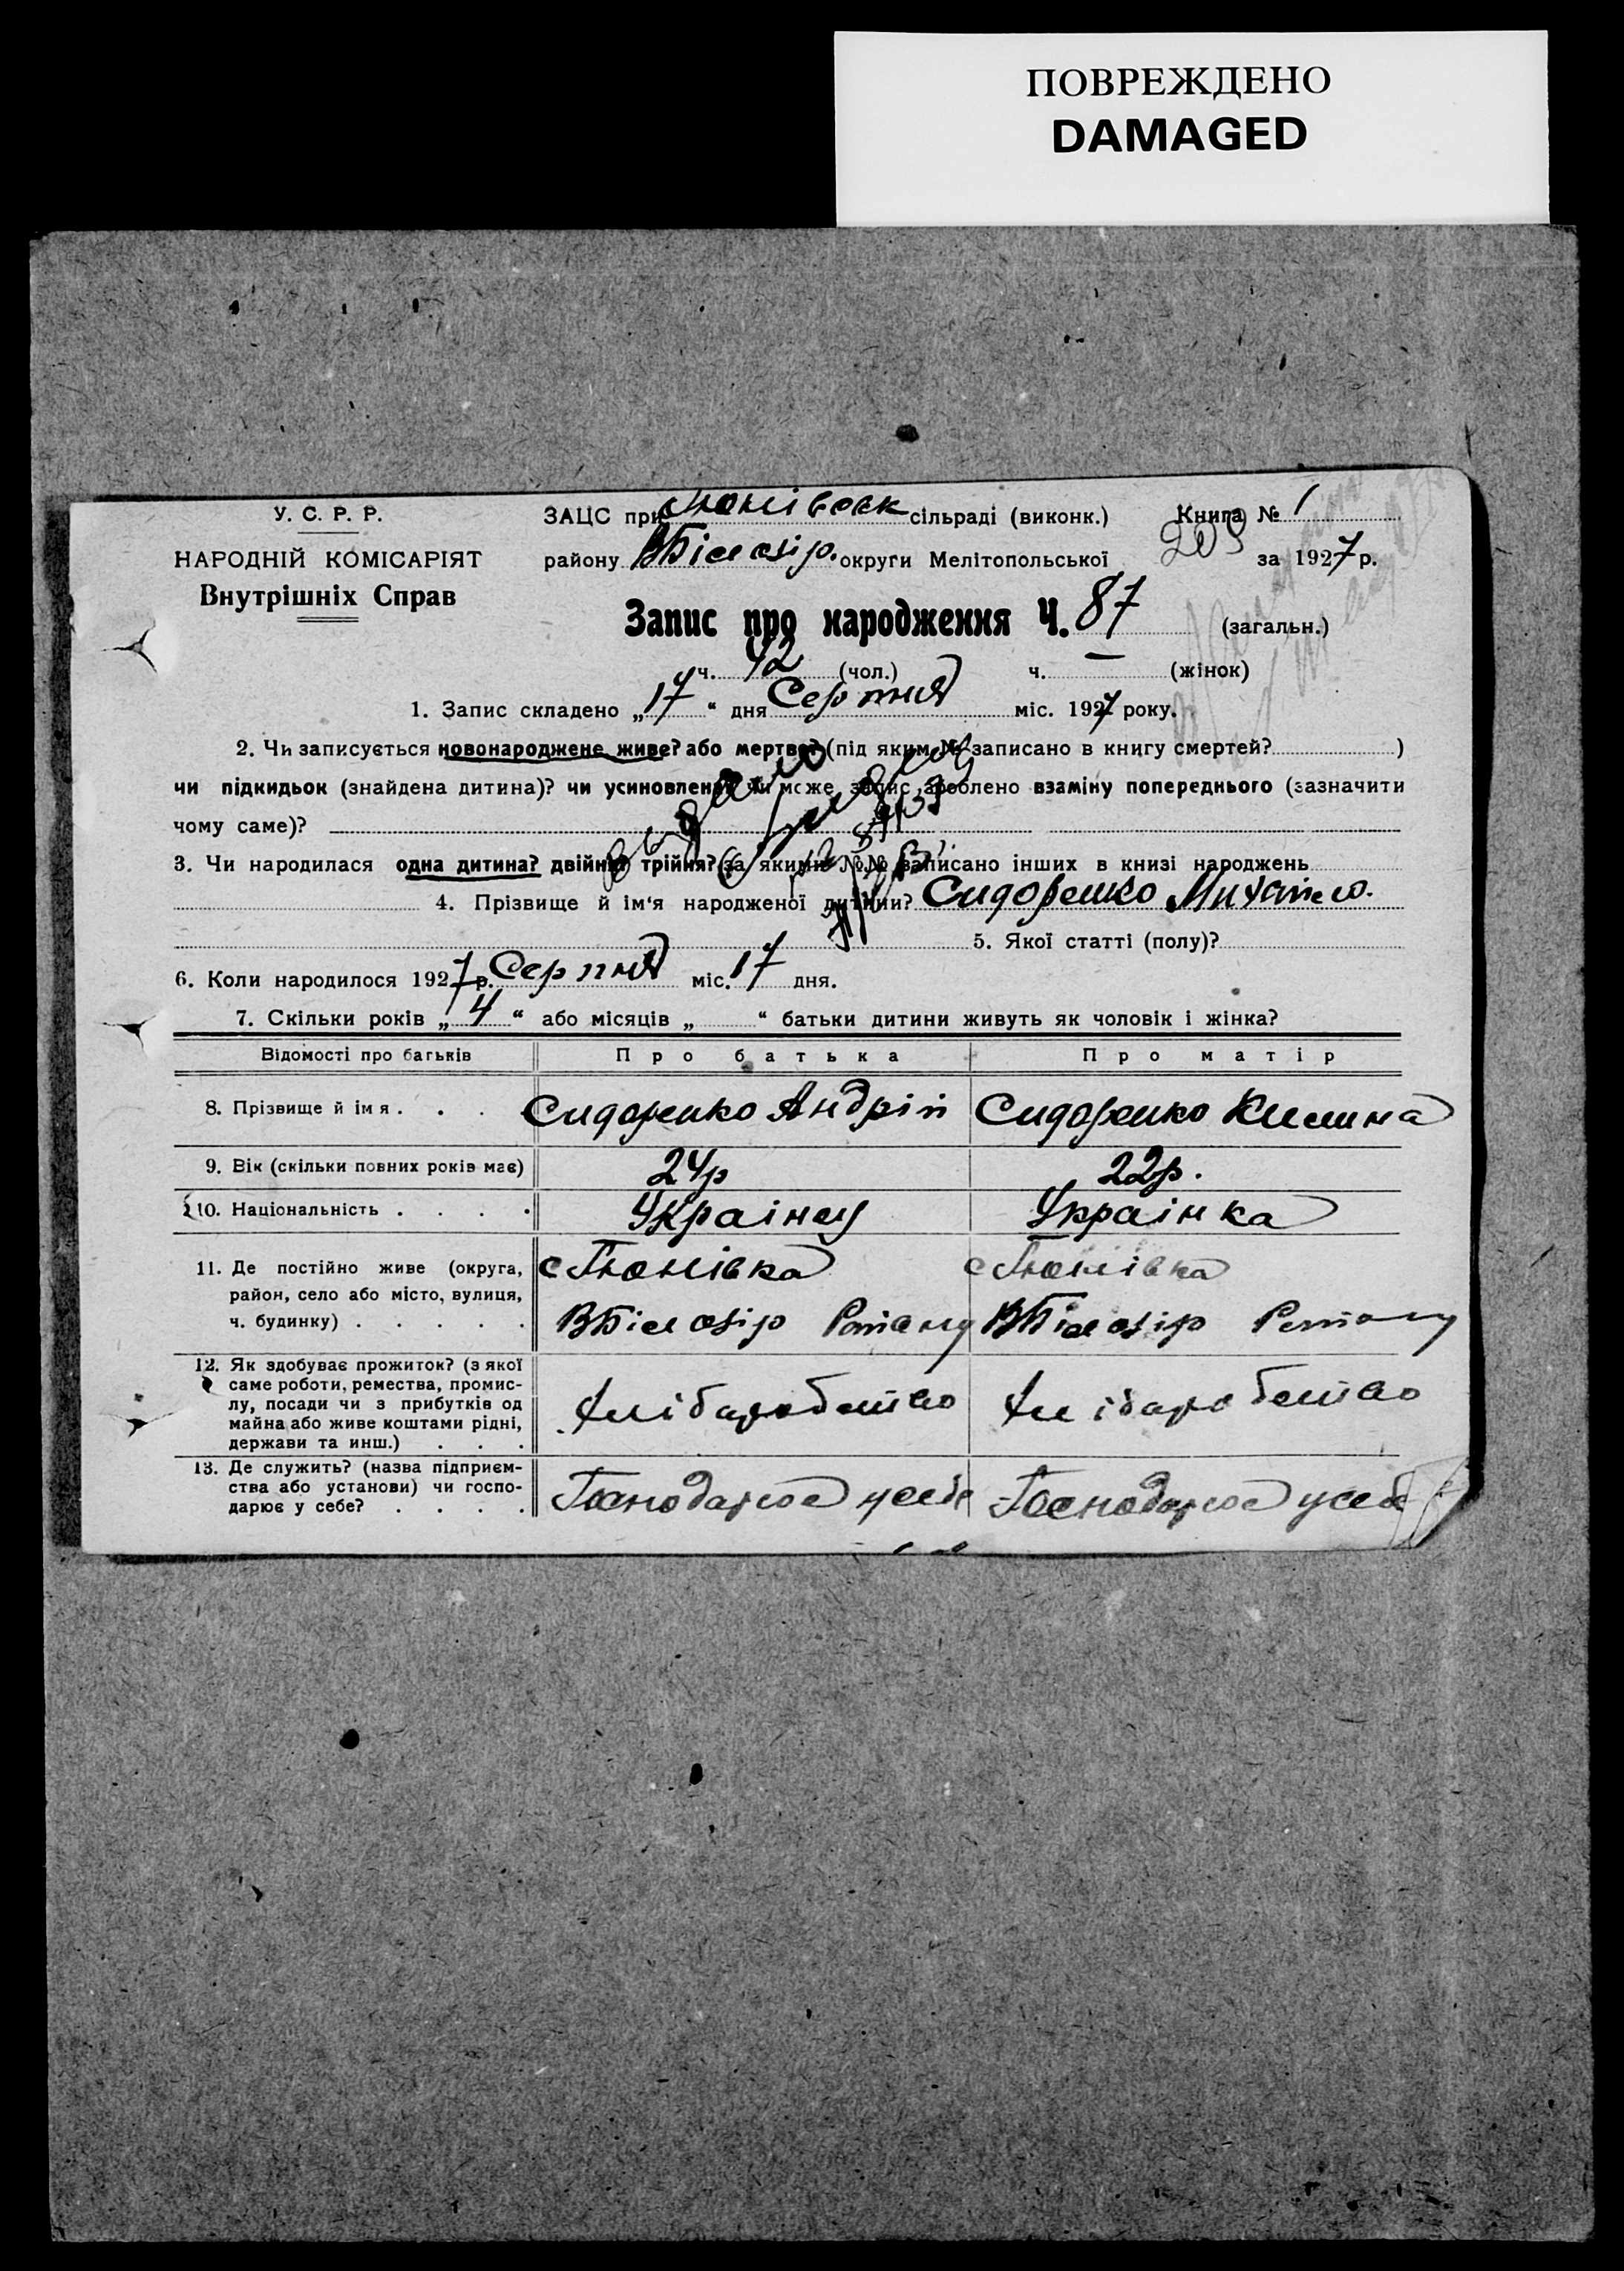 ПОВРЕЖДЕНО
DAMAGED
У. С. Р. Р.
НАРОДНІЙ КОМІСАРІЯТ
Внутрішніх Справ
ЗАЦС при сільраді (виконк.) Книга № 1
району ВБілозір. округи Мелітопольської 203 за 1927 р.
Запис про народження Ч. 87 (загальн.)
ч. 42 (чол.) ч. — (жінок)
1. Запис складено „17“ дня Серпня міс. 1927 року.
2. Чи записується новонароджене живе? або мертве? (під яким № записано в книгу смертей? )
чи підкидьок (знайдена дитина)? чи усиновлення? чи може запис зроблено взаміну попереднього (зазначити
чому саме)?
3. Чи народилася одна дитина? двійня? трійня? (за якими №№ записано інших в книзі народжень
4. Прізвище й ім‘я народженої дитини? Сидоренко Михайло.
5. Якої статті (полу)?
6. Коли народилося 1927 р. Серпня міс. 17 дня.
7. Скільки років „4“ або місяців „ “ батьки дитини живуть як чоловік і жінка?
Відомості про батьків Про батька Про матір
8. Прізвище й імя . . . Сидоренко Андрій Сидоренко
9. Вік (скільки повних років має) 24р 22р.
10. Національність . . . . Українец Українка
11. Де постійно живе (округа,
район, село або місто, вулиця,
ч. будинку) . . . . .
с Тюнівка с Тюнівка
ВБілозір Району ВБілозір Району
12. Як здобуває прожиток? (з якої
саме роботи, ремества, промис-
лу, посади чи з прибутків од
майна або живе коштами рідні,
держави та инш.) . . .
Хліборобство Хліборобство
13. Де служить? (назва підприєм-
ства або установи) чи госпо-
дарює у себе? . . . .
Господарює у себе Господарює у себе